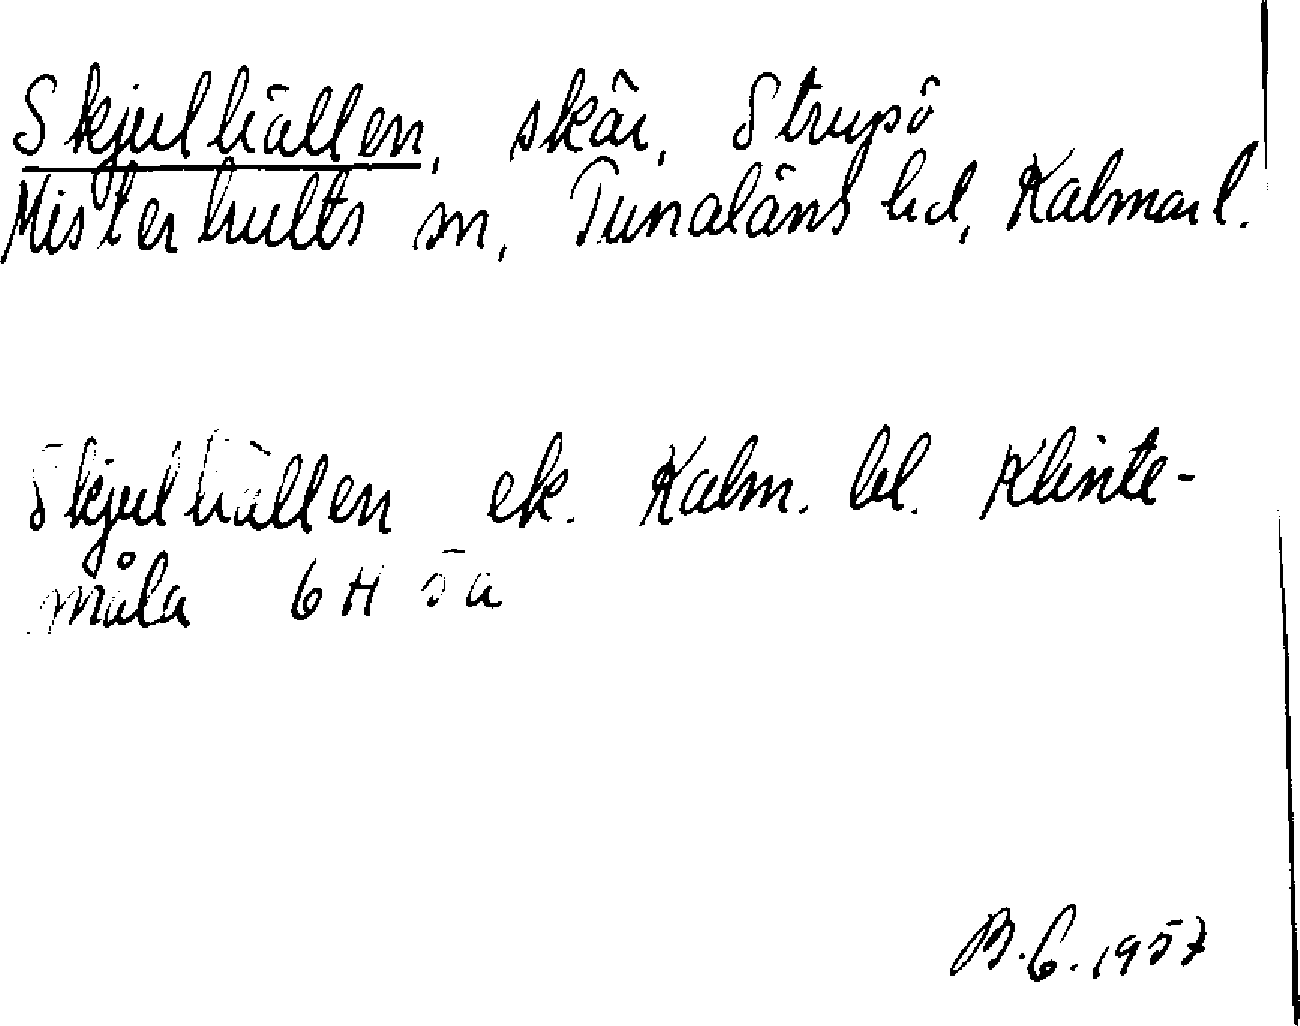 Skjulhällen, skär, Strupö
Misterhults sn, Tunaläns hd, Kalmar l.
Skjulhällen ek. Kalm. bl. Klinte-
måla 6 H 5 a
B. G. 1957